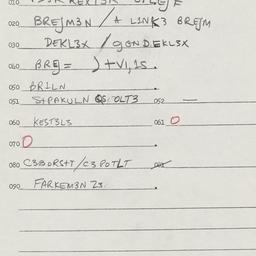 010
020 BREJM3N / + L1NK3 BREJM
030 DEKL3X / gOND.EKL3X
060 BREJ = ) + V1,1S .
050 BR1LN
051 S+PAKULN OLT3 052 —
060 KEST3LS 061 O
070 O .
080 C3BORS+T / C3POTLT 081
090 FARKEM3N 2S. .